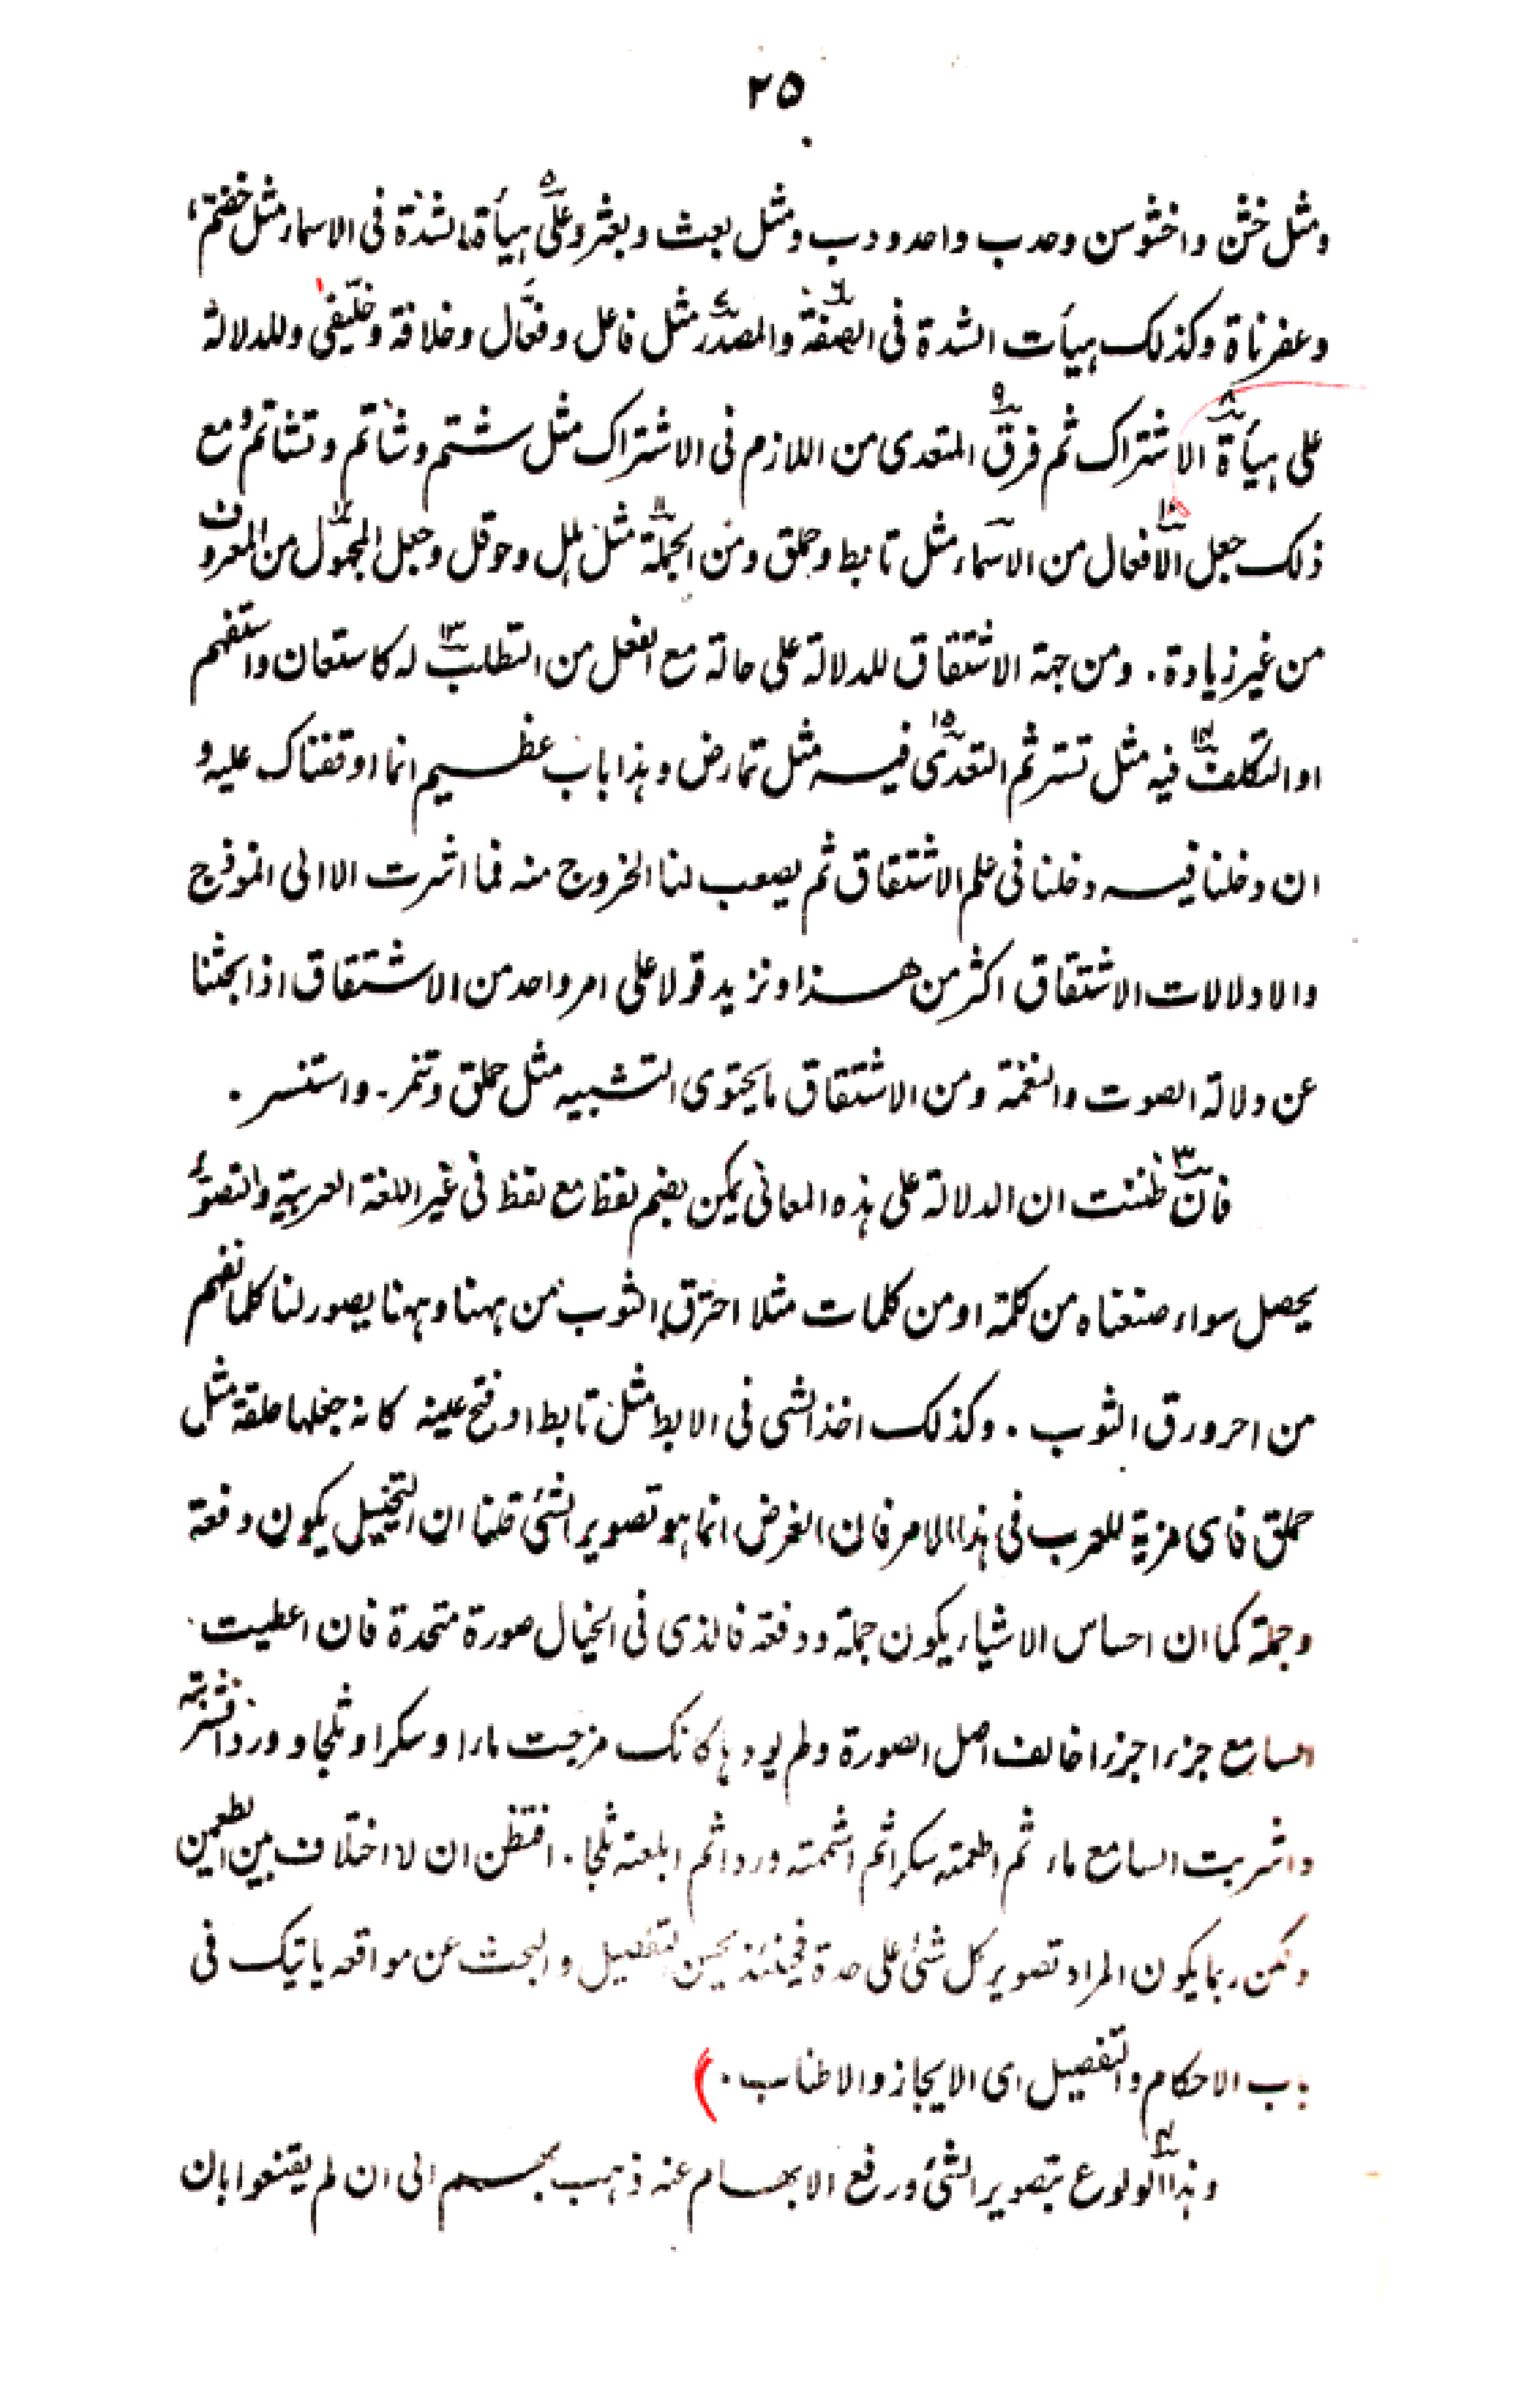 ٢٥
ومثل خشن واخشوشن وحدب واحدودب ومثل بعث وبعثر وعلى هيأة الشدة فى الاسماء مثل خضم،
وعفرناة وكذلك هيأت الشدة فى الصفة والمصدر مثل فاعل وفعّال وخلافة وخلّيفى وللدلالة
على هيأة الاشتراك ثم فرق المتعدى من اللازم فى الاشتراك مثل شتم وشاتم وتشاتم ومع
ذلك جعل الافعال من الاسماء مثل تابط وحملق ومن الجملة مثل هلل وحوقل وجعل المجهول من المعروف
من غير زيادة. ومن جهة الاشتقاق للدلالة على حالة مع الفعل من التطلب له كاستعان واستفهم
او التكلف فيه مثل تستر ثم التعدى فيه مثل تمارض وهذا باب عظيم انما اوقفناك عليه و
ان دخلنا فيه دخلنا فى علم الاشتقاق ثم يصعب لنا الخروج منه فما اشرت الا الى انموذج
والا دلالات الاشتقاق اكثر من هذا ونزيد قولا على امر واحد من الاشتقاق اذا بحثنا
عن دلالة الصوت والنغمة ومن الاشتقاق ما يحتوى التشبيه مثل حملق وتنمر۔ واستنسر.
فان ظننت ان الدلالة على هذه المعانى يمكن بضم لفظ مع لفظ فى غير اللغة العربية والتصور
يحصل سواء صنعناه من كلمة او من كلمات مثلا احترق الثوب من ههنا وههنا يصور لنا كلما نفهم
من احرورق الثوب. وكذلك اخذ الشى فى الابط مثل تابط او فتح عينه كانه جعلها حلقة مثل
حملق فاى مزية للعرب فى هذا الامر فان الغرض انما هو تصوير الشئ قلنا ان التخييل يكون دفعة
وجملة كما ان احساس الاشياء يكون جملة ودفعة فالذى فى الخيال صورة متحدة فان اعطيت
السامع جزءا جزءا خالف اصل الصورة ولم يودها كانك مزجت ماءا وسكرا وثلجا ووردا فشربته
واشربت السامع ماء ثم اطعمته سكرا ثم اشممته وردا ثم ابلعته ثلجا. افتظن ان لا اختلاف بين الطعمين
ولكن ربما يكون المراد تصوير كل شئ على حدة فحينئذ يحسن التفصيل والبحث عن مواقعه ياتيك فى
باب الاحكام والتفصيل اى الايجاز والاطناب.
وهذا الولوع بتصوير الشئ ورفع الابهام عنه ذهب بهم الى ان لم يقنعوا بان